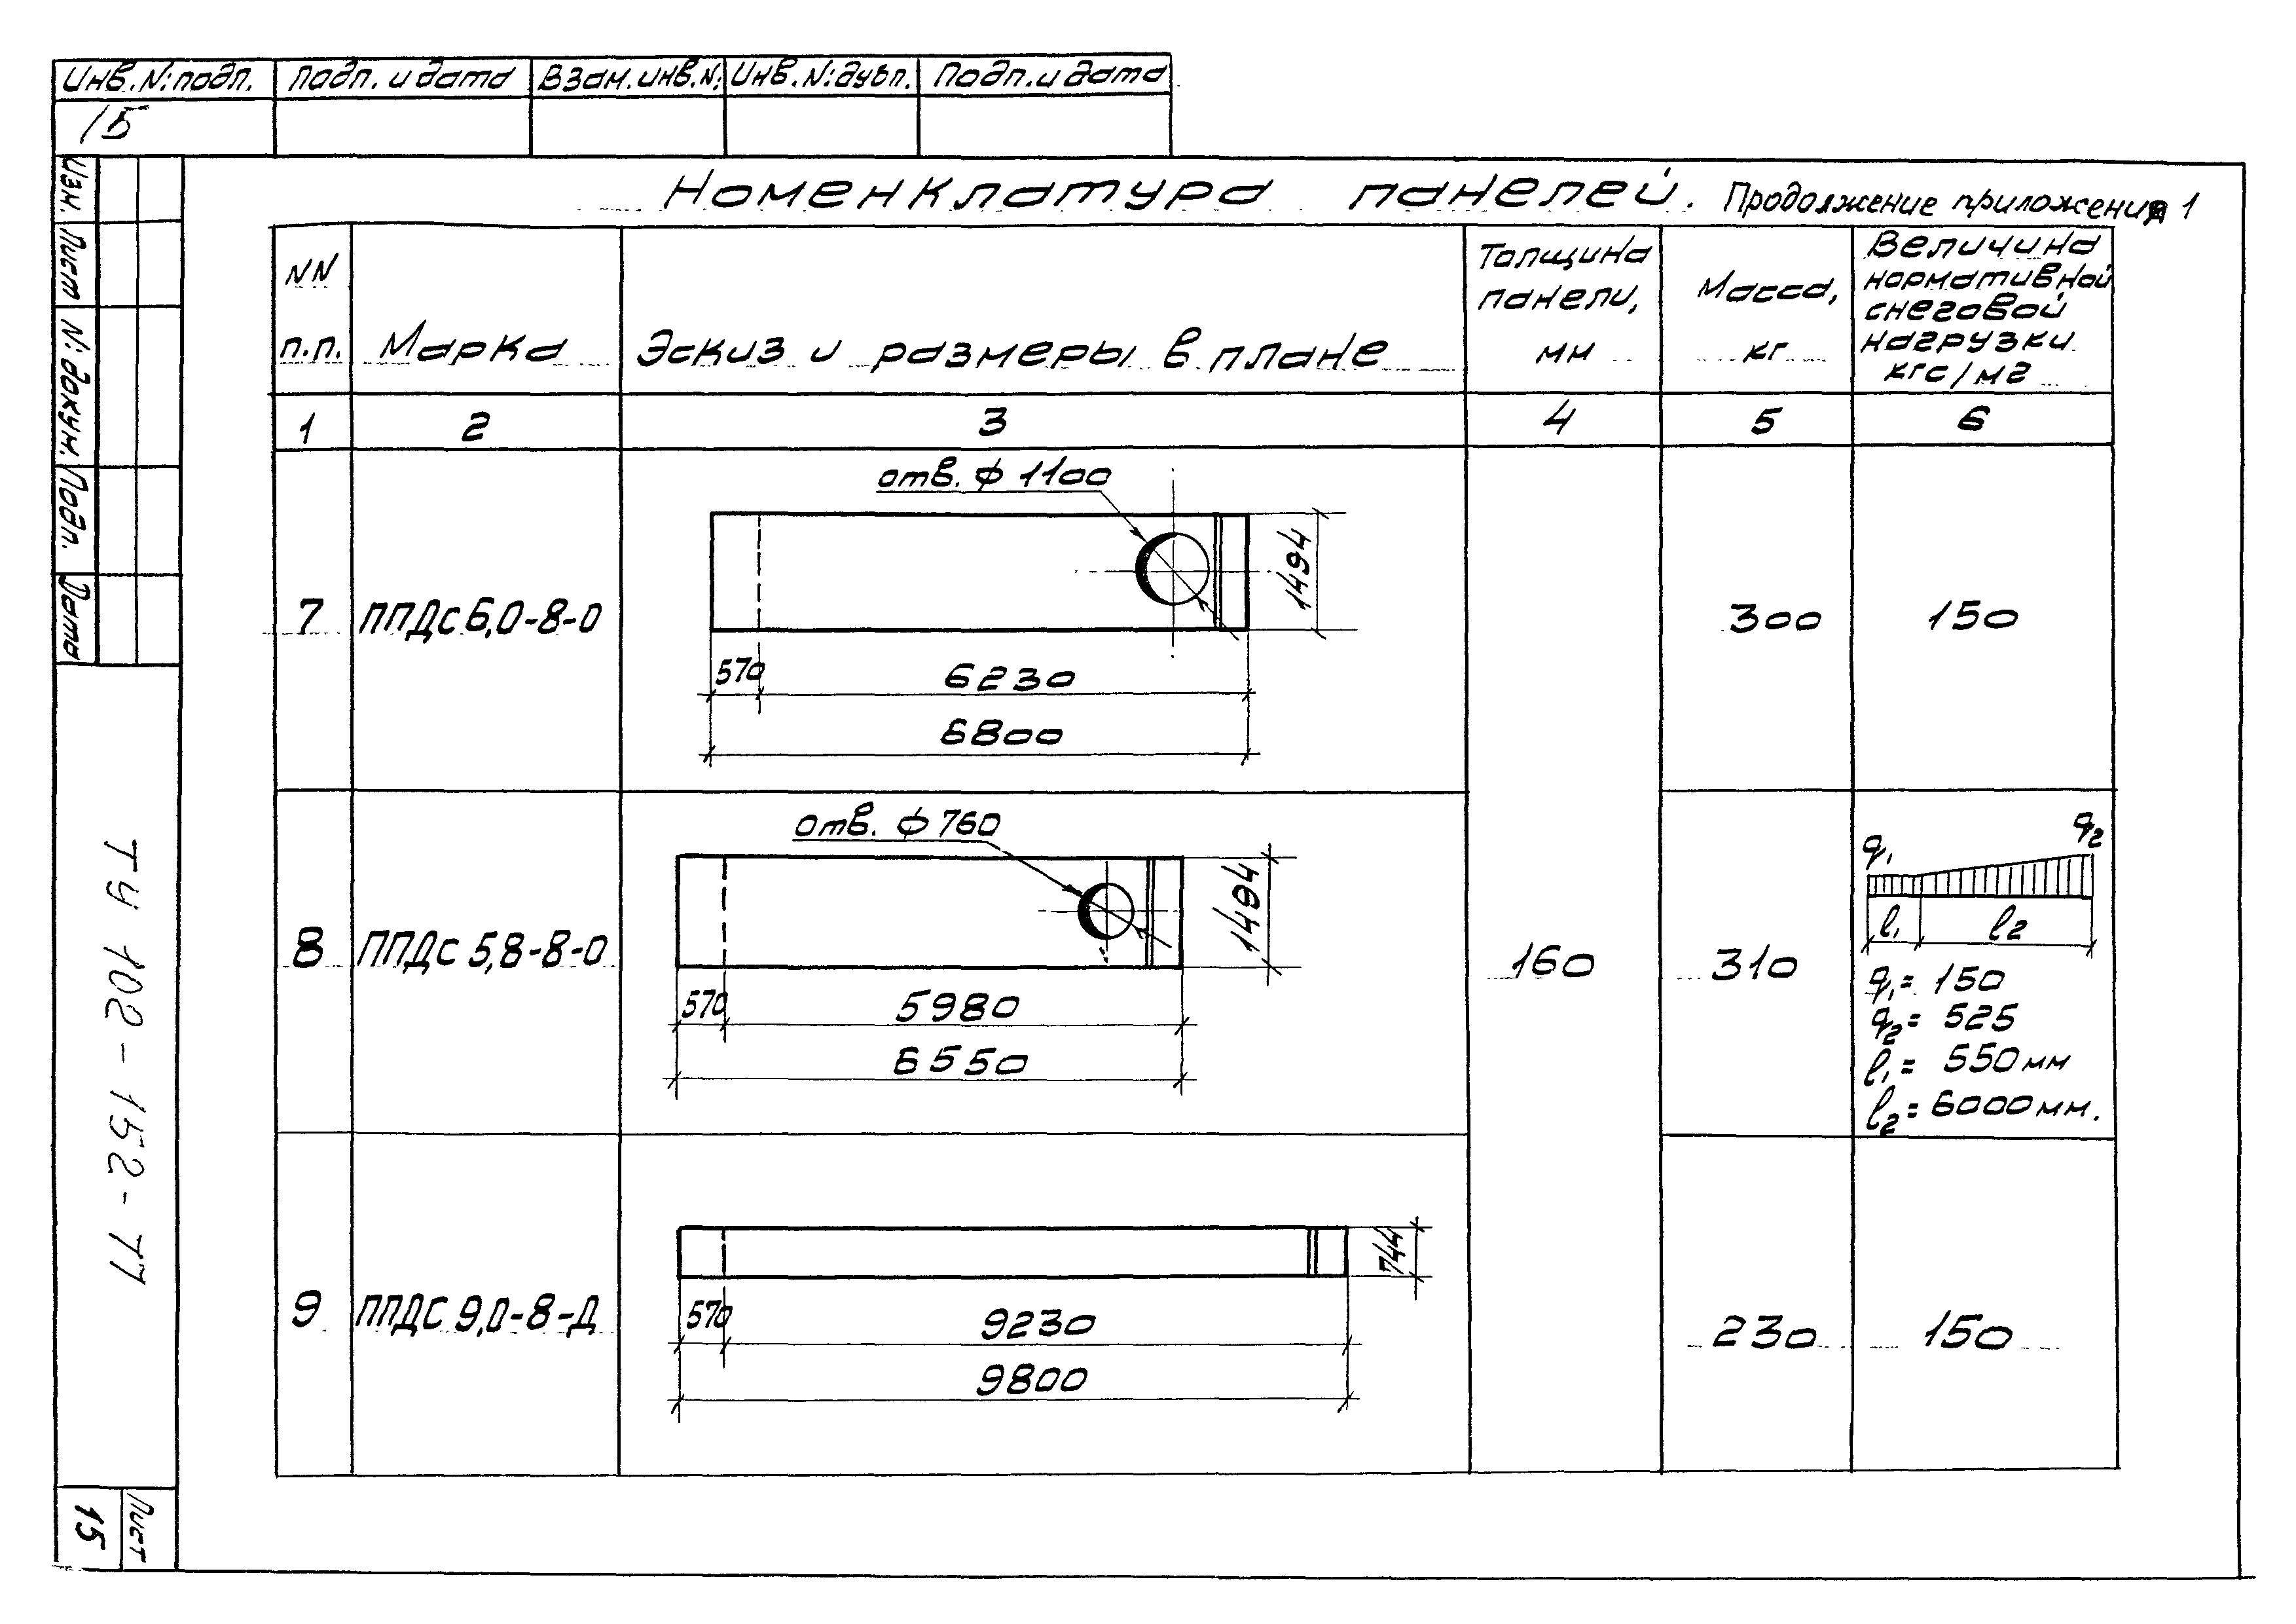 Инв.N:подл. Подп. и дата Взам.инв.N: Инв.N:дубл. Подп.и дата
15
Изм. Лист N:докум. Подп. Дата
Номенклатура панелей. Продолжение приложения 1
NN
п.п.
Марка
Эскиз и размеры в плане
Толщина
панели,
мм
Масса,
кг
Величина
нормативной
снеговой
нагрузки
кгс/м2
1 2 3 4 5 6
отв. ф 1100
1494
7 ППДс 6,0-8-0
300
150
570 6230
6800
отв. ф 760
1494
8 ППДс 5,8-8-0
570 5980
6550
160
310
q1 q2
l1 l2
q1= 150
q2= 525
l1= 550мм
l2= 6000мм.
744
9 ППДС 9,0-8-Д
570 9230
9800
230
150
ТУ 102-152-77
Лист
15